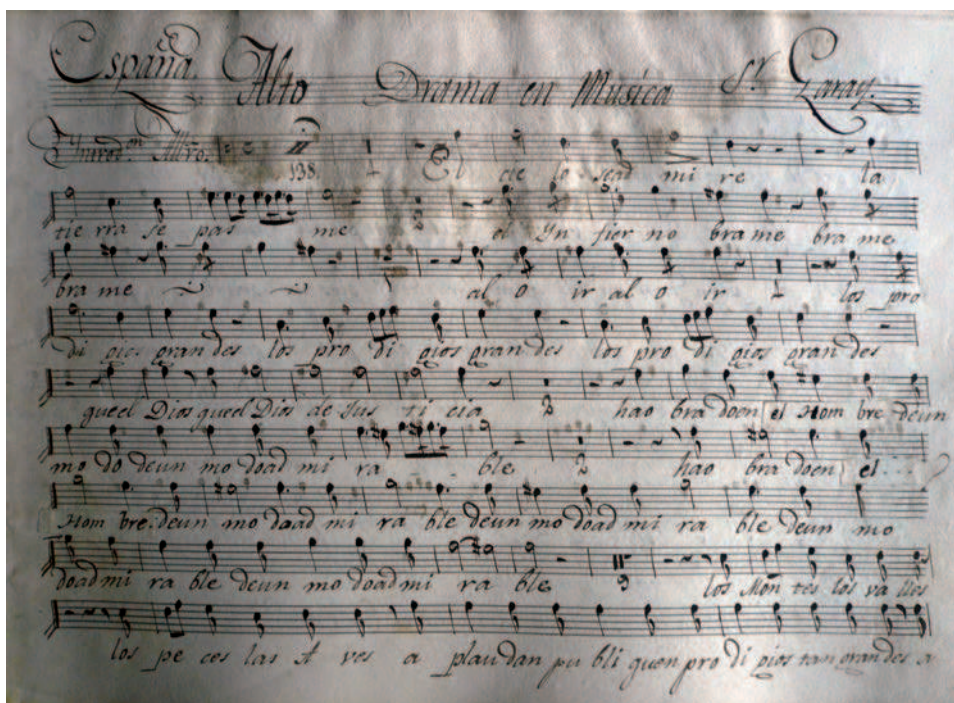 España. Alto Drama en Musica Sr. Garay.
Introdon. Allro. 138. 1 El cie lo sead mi re la
tie rra se pas me 2 el Yn fier no bra me bra me
bra me al o ir al o ir 1 los pro
di gios gran des los pro di gios gran des los pro di gios gran des
queel Dios queel Dios de Jus ti cia 2 hao bra doen el Hom bre deun
mo do deun mo doad mi ra ble 2 hao bra doen el
Hom bre deun mo doad mi ra ble deun mo doad mi ra ble deun mo
doad mi ra ble deun mo doad mi ra ble 9 los Mon tes los va lles
los pe ces las A ves a plau dan pu bli quen pro di gios tan gran des a